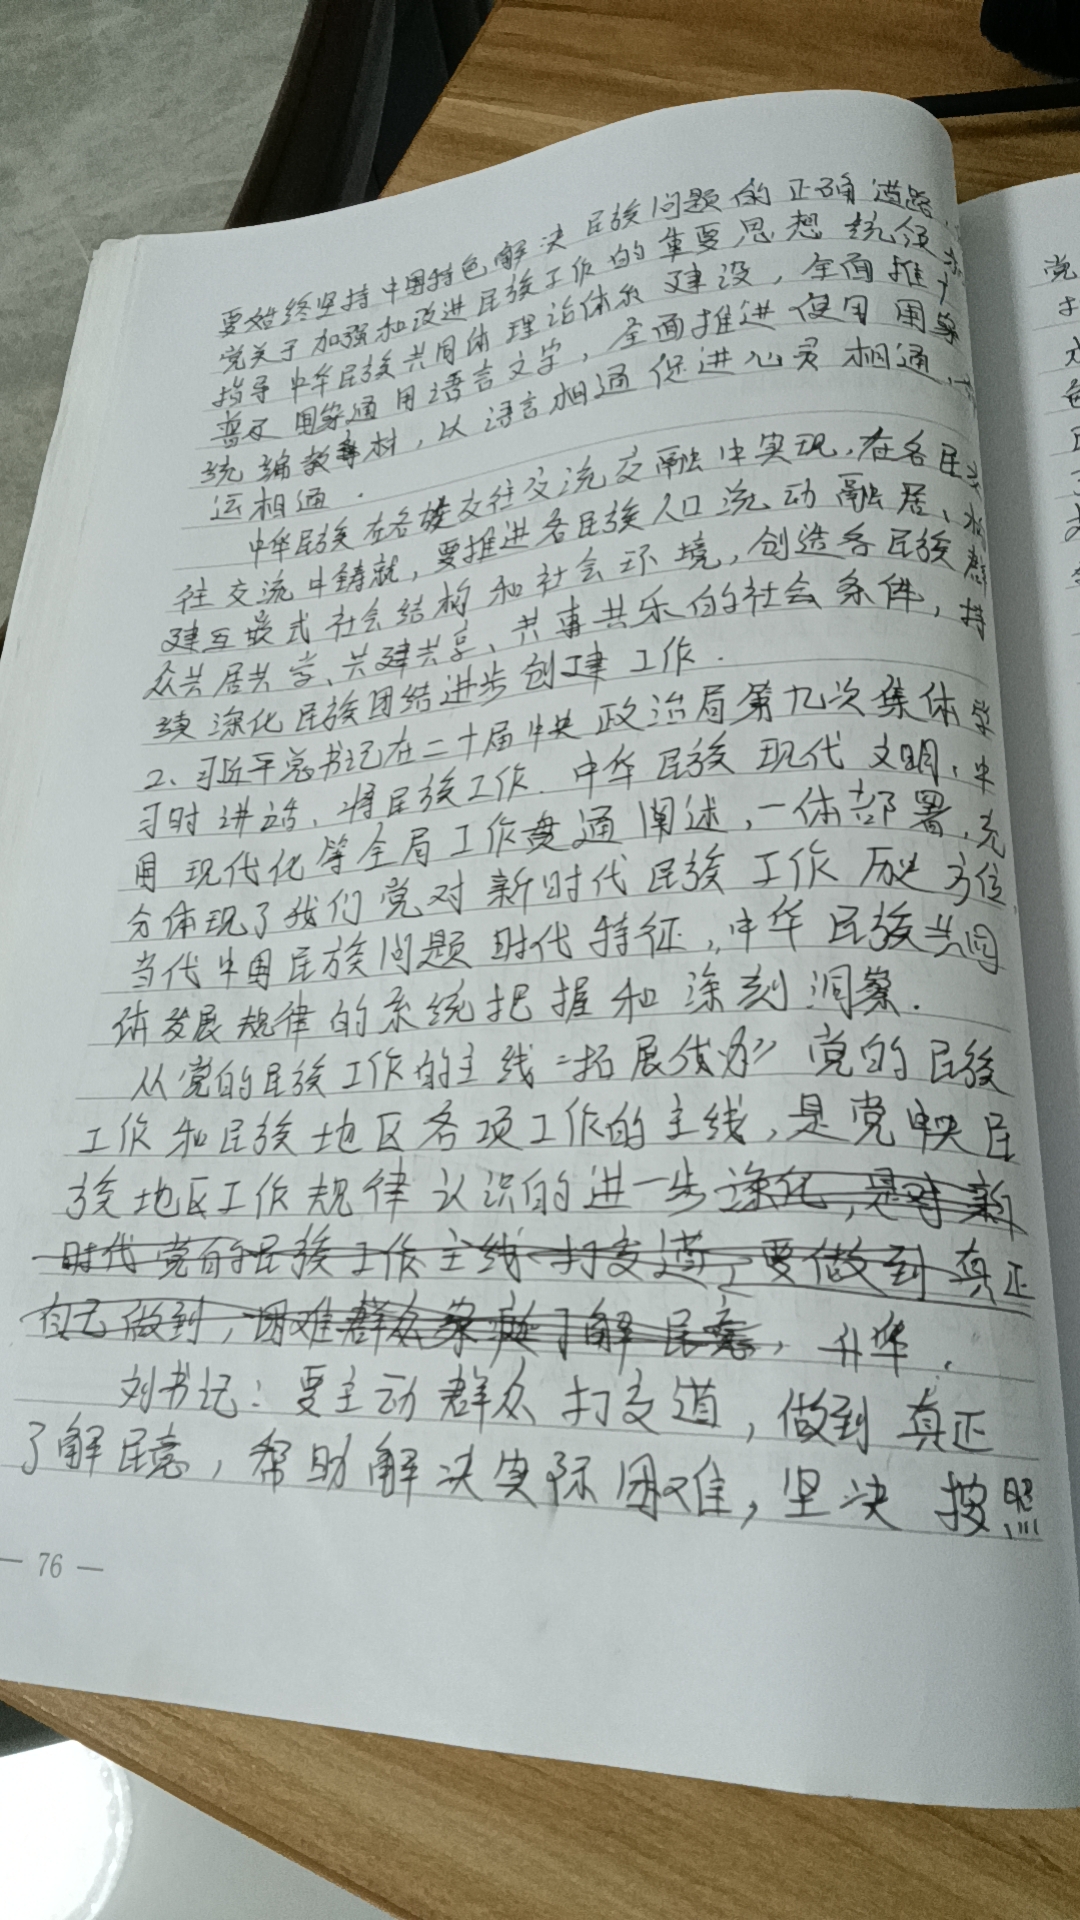 要始终坚持中国特色解决民族问题的正确道路，
党关于加强和改进民族工作的重要思想统领
指导中华民族共同体理论体系建设，全面推广
普及国家通用语言文字，全面推进使用国家
统编教材，以语言相通促进心灵相通，
运相通.
中华民族在各族交往交流交融中实现，在各民
往交流中铸就，要推进各民族人口流动融居，构
建互嵌式社会结构和社会环境，创造各民族群
众共居共学、共建共享、共事共乐的社会条件，持
续深化民族团结进步创建工作.
2、习近平总书记在二十届中央政治局第九次集体学
习时讲话，将民族工作.中华民族现代文明，中
国现代化等全局工作贯通阐述，一体部署，充
分体现了我们党对新时代民族工作历史方位，
当代中国民族问题时代特征，中华民族共同
体发展规律的系统把握和深刻洞察.
从党的民族工作的主线"拓展成为"党的民族
工作和民族地区各项工作的主线，是党中央民
族地区工作规律认识的进一步深化，是对新
时代党的民族工作主线 打交道，要做到真正
自己做到，困难群众 了解民意，升华.
刘书记：要主动群众打交道，做到真正
了解民意，帮助解决实际困难，坚决按照
— 76 —
党